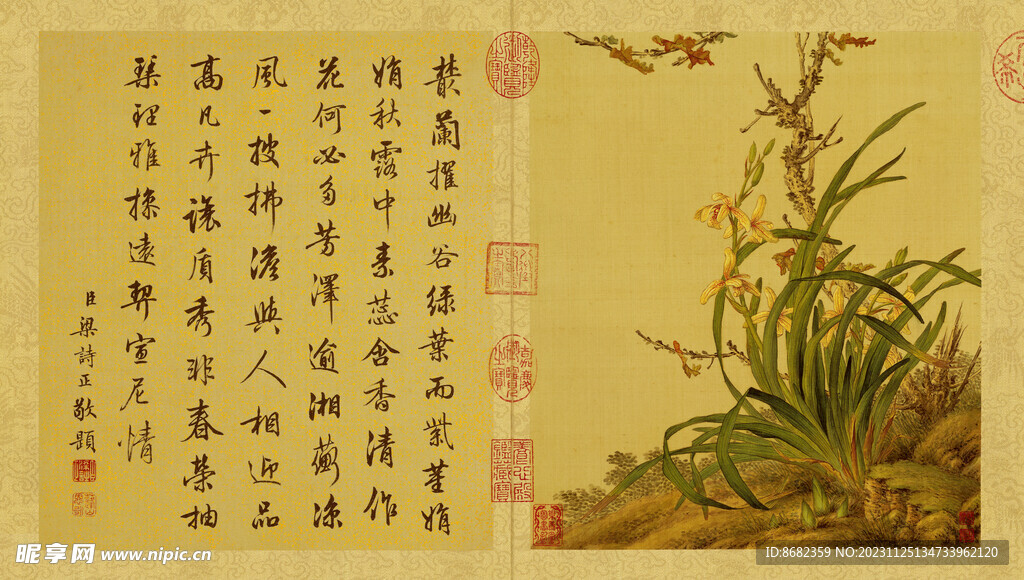 叢蘭擢幽谷綠葉而紫莖娟
娟秋露中素蕊含香清作
花何必多芳澤逾湘蘅涼
風一披拂澹與人相迎品
高凡卉讓質秀非春榮抽
琹理雅操遠契宣尼情
臣梁詩正敬題
乾隆御覽之寶
嘉慶御覽之寶
昵享网 www.nipic.cn
ID:8682359 NO:20231125134733962120